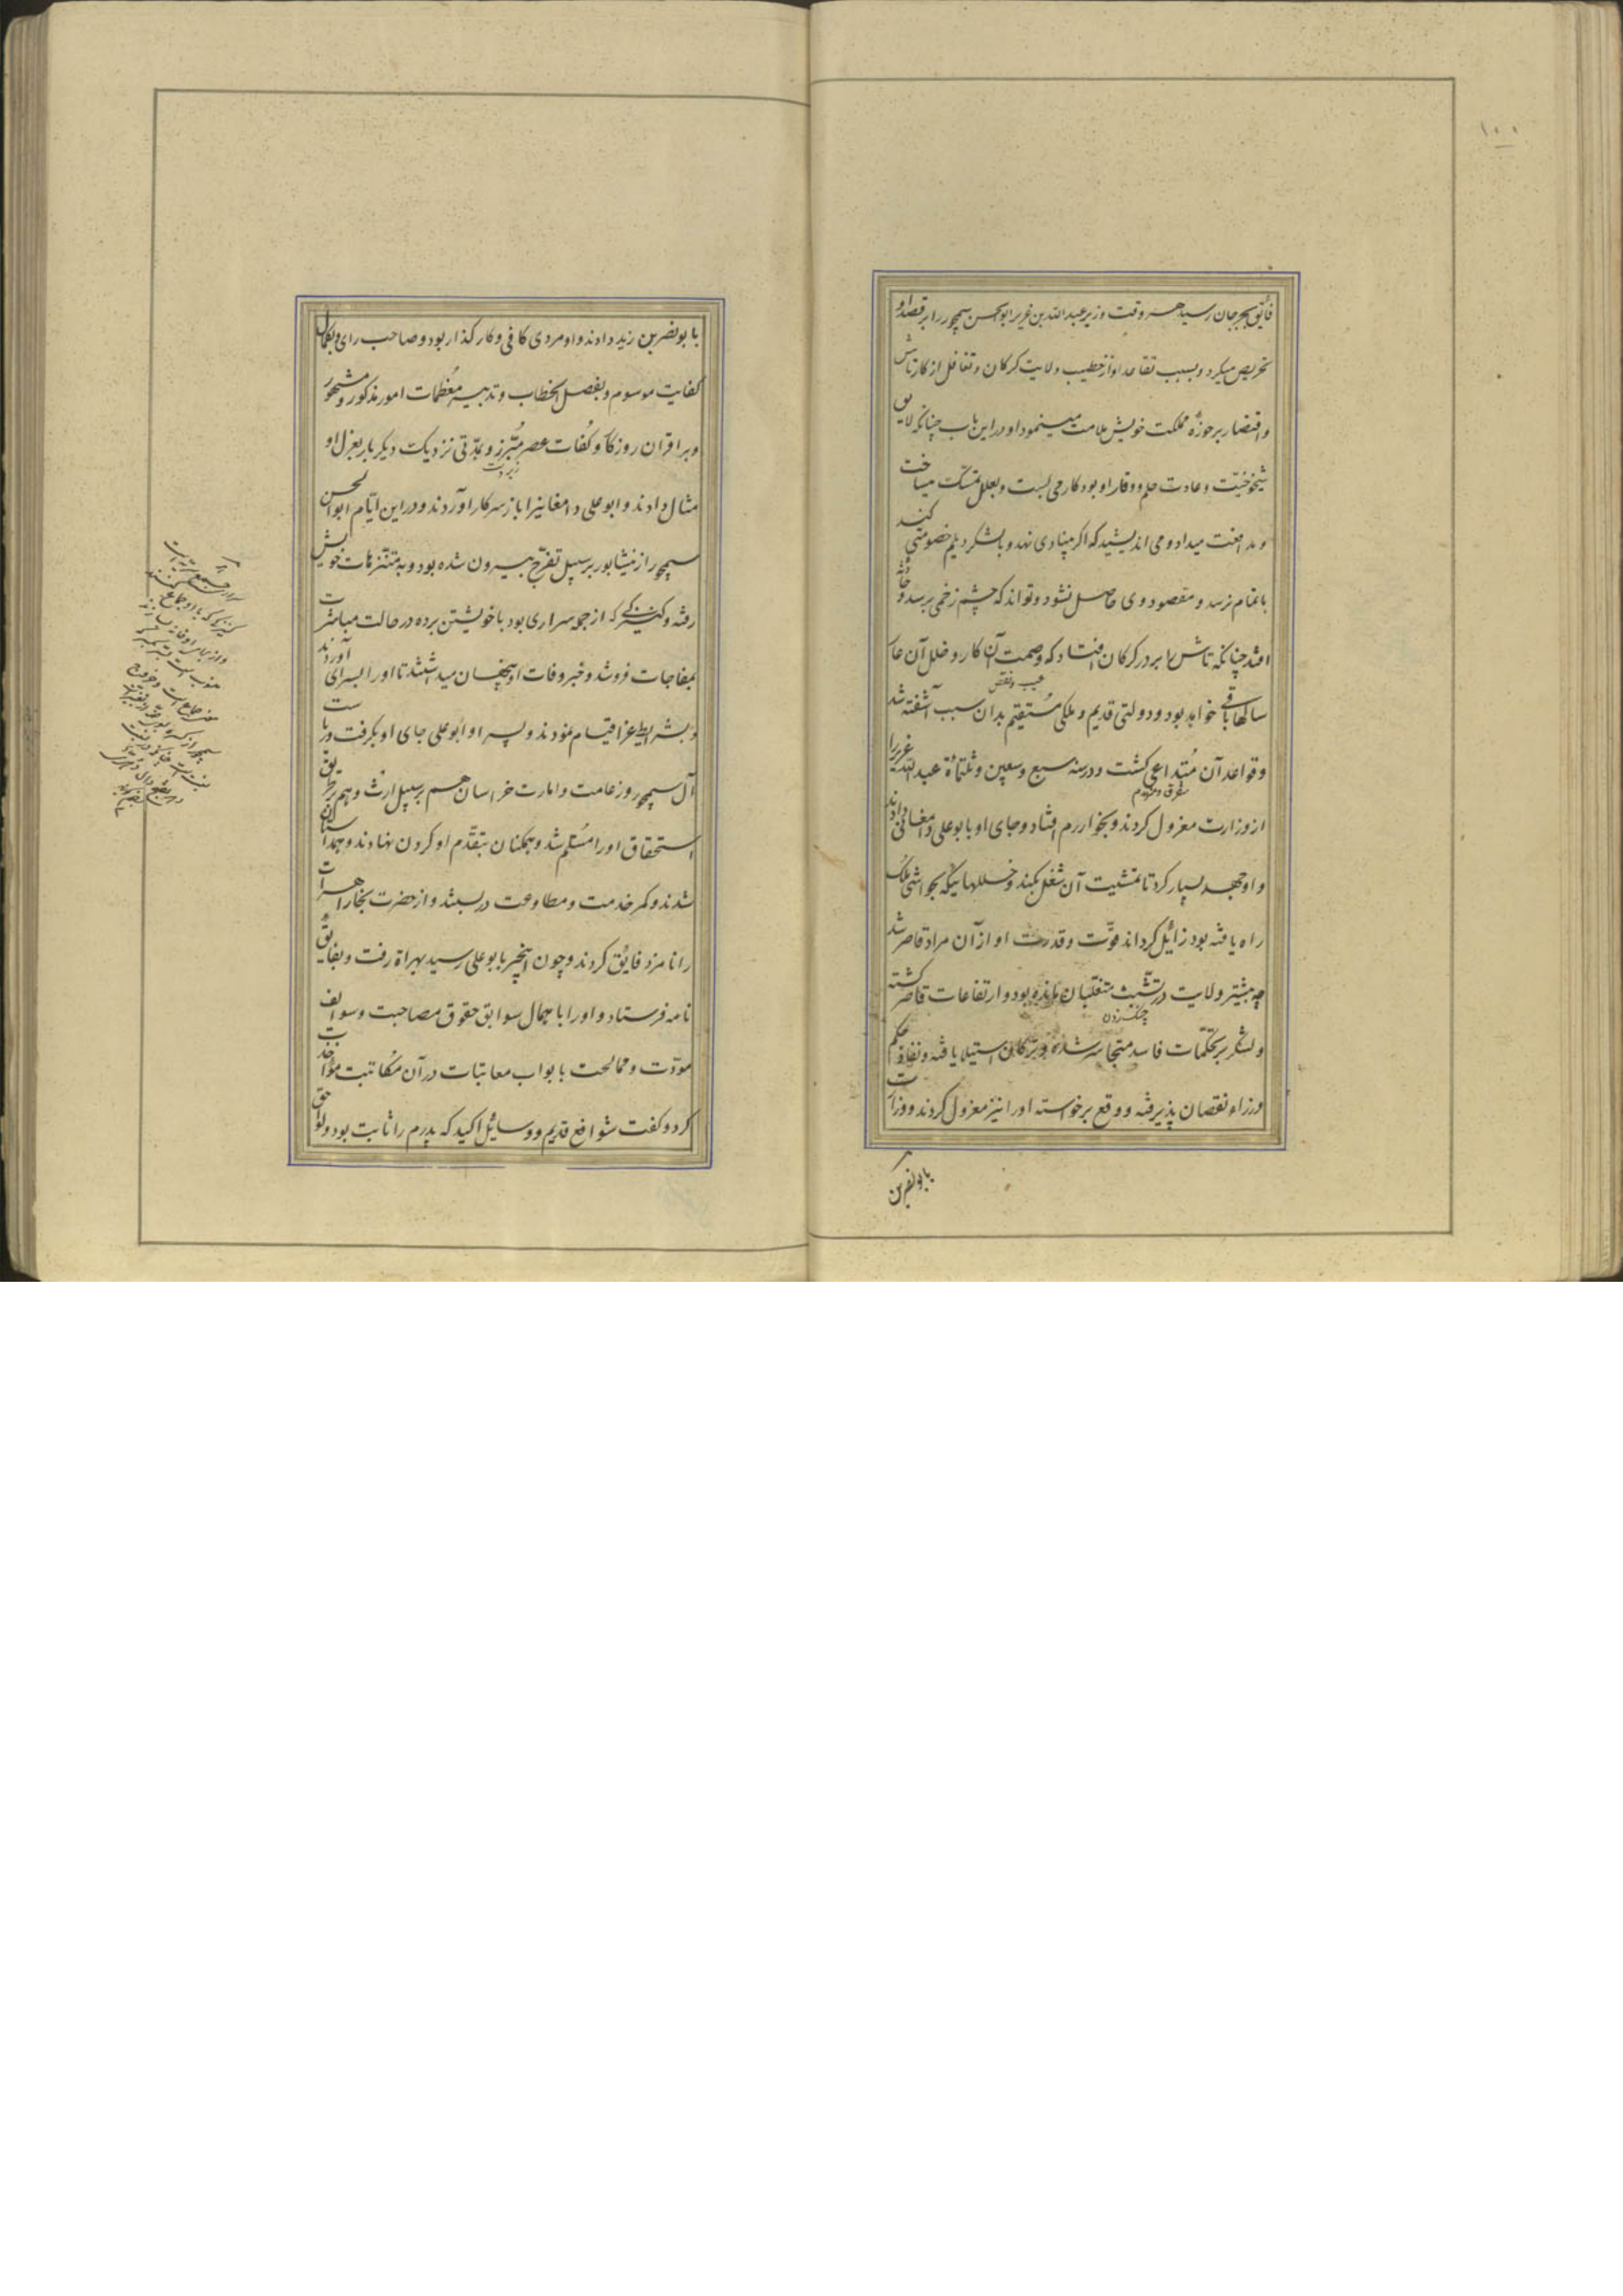 ۱۰۰
فایق بجرجان رسید هر وقت وزیر عبدالله بن عزیر ابوالحسن سیمجور را بر قصد او
تحریض میکرد و بسبب تقاعد او از خطیب ولایت کرکان و تغافل از کار تاش
و اقتصار بر حوزهٔ مملکت خویش ملامت مینمود او در این باب چنانکه لایق
شیخوخیّت و عادت حلم و وقار او بود کار می بست و بعلل تمسّک میساخت
و مدافعت میداد و می اندیشید که اکر بنیادی نهد و با لشکر دیلم خصومتی کند
باتمام نرسد و مقصود وی حاصل نشود و تواند که چشم زخمی برسد و حادثهٔ
افتد چنانکه تاش را بر در کرکان افتاد که وصمت آن کار و خلل آن عار
عیب و نقص
سالها باقی خواهد بود و دولتی قدیم و ملکی مستقیم بدان سبب آشفته شد
و قواعد آن متداعی کشت و در سنه سبع و سبعین و ثلثمائة عبدالله عزیر را
متفرق و منهدم
از وزارت معزول کردند و بخوارزم افتاد و جای او بابو علی دامغانی دادند
و او جهد بسیار کرد تا تمشیت آن شغل بکند و خللهائیکه بحواشی ملک
راه یافته بود زائل کرداند قوّت و قدرت او از آن مراد قاصر شد
چه بیشتر ولایت در تشبّث متغلّبان مانده بود و ارتفاعات قاصر کشته
چنک زدن
و لشکر بر تحکّمات فاسد متجاسر شده و ترکان استیلا یافته و نفاذ حکم
وزراء نقصان پذیرفته و وقع برخواسته او را نیز معزول کردند و وزارت
بابو نصر بن
بابو نصر بن زید دادند و او مردی کافی و کار کذار بود و صاحب رای و بکمال
کفایت موسوم و بفصل الخطاب و تدبیر معظمات امور مذکور و مشهور
و بر اقران روزکار و کفات عصر مبرّز و بمدّتی نزدیک دیکر بار بعزل او
زبردست
مثال دادند و ابو علی دامغانیرا باز سر کار آوردند و در این ایّام ابوالحسن
سیمجور از نیشابور بر سبیل تفرّج بیرون شده بود و به متنزهات خویش
رفته و کنیزکی که از جو سراری بود با خویشتن برده در حالت مباشرت
بمفاجات فروشد و خبر وفات او پنهان میداشتند تا او را بسرای آوردند
و بشرایط عزا قیام نمودند و پسر او ابو علی جای او بکرفت و ریاست
آل سیمجور و زعامت و امارت خراسان هم بر سبیل ارث و هم بر طریق
استحقاق او را مسلّم شد و همکنان بتقدّم او کردن نهادند و همداستان
شدند و کمر خدمت و مطاوعت در بستند و از حضرت بخارا هرات
را نامزد فایق کردند و چون اینخبر بابو علی رسید بهراة رفت و بفایق
نامه فرستاد و او را با جمال سوابق حقوق مصاحبت و سوالف
مودّت و ممالحت بابواب معاتبات در آن مکاتبت مؤاخذت
کرد و کفت شوافع قدیم و وسائل اکید که پدرم را ثابت بود و لواحق